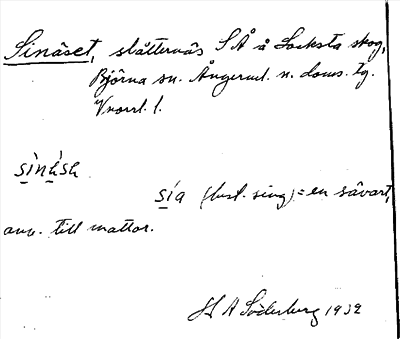 Sinäset, slåtternäs SÅ å Locksta skog,
Björna sn. Ångerml. n. doms. tg.
Vnorrl. l.
sìnǽsa
sía (best. sing) = en sävart,
anv. till mattor.
H A Söderberg 1932